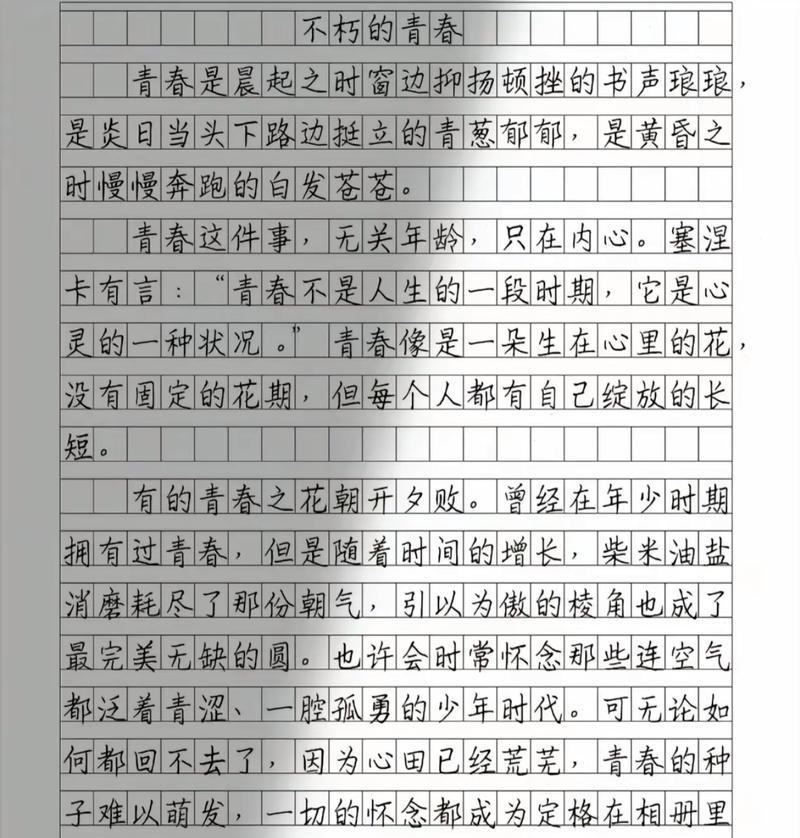 不朽的青春
青春是晨起之时窗边抑扬顿挫的书声琅琅，
是炎日当头下路边挺立的青葱郁郁，是黄昏之
时慢慢奔跑的白发苍苍。
青春这件事，无关年龄，只在内心。塞涅
卡有言：“青春不是人生的一段时期，它是心
灵的一种状况。”青春像是一朵生在心里的花，
没有固定的花期，但每个人都有自己绽放的长
短。
有的青春之花朝开夕败。曾经在年少时期
拥有过青春，但是随着时间的增长，柴米油盐
消磨耗尽了那份朝气，引以为傲的棱角也成了
最完美无缺的圆。也许会时常怀念那些连空气
都泛着青涩、一腔孤勇的少年时代。可无论如
何都回不去了，因为心田已经荒芜，青春的种
子难以萌发，一切的怀念都成为定格在相册里